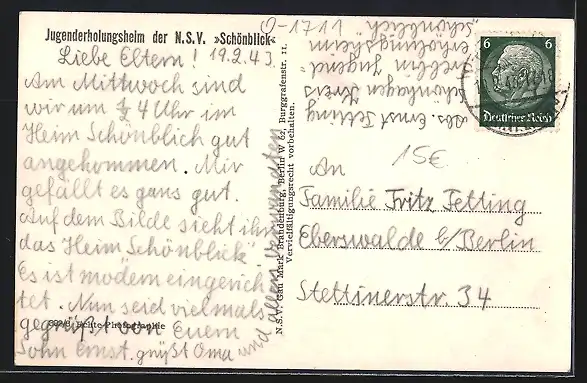 Jugenderholungsheim der N.S.V. »Schönblick«
O-1711
Liebe Eltern! 19.2.43.
Am Mittwoch sind
wir um ¾ 4 Uhr im
Heim Schönblick gut
angekommen. Mir
gefällt es gans gut.
Auf dem Bilde sieht ihr
das Heim „Schönblick“
Es ist modern eingerich
tet. Nun seid vielmals
gegrüßt von Euern
Sohn Ernst. grüßt Oma
und allen Verwandten
Echte Photographie
N.S.V. Gau Mark Brandenburg, Berlin W 62, Burggrafenstr. 11.
Vervielfältigungsrecht vorbehalten.
Abs. Ernst Fetting
Schönhagen Kreis
Trebbin Jugend
erholungsheim
„Schönblick“
6 6
Deutsches Reich
15€
An
Familie Fritz Fetting
Eberswalde b/Berlin
Stettinerstr. 34